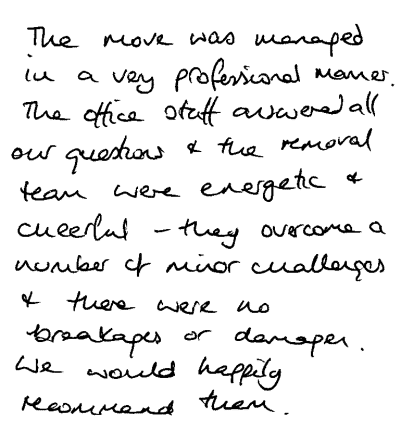 The move was managed
in a very professional manner.
The office staff answered all
our questions & the removal
team were energetic &
cheerful - they overcame a
number of minor challenges
& there were no
breakages or damages.
We would happily
recommend them.